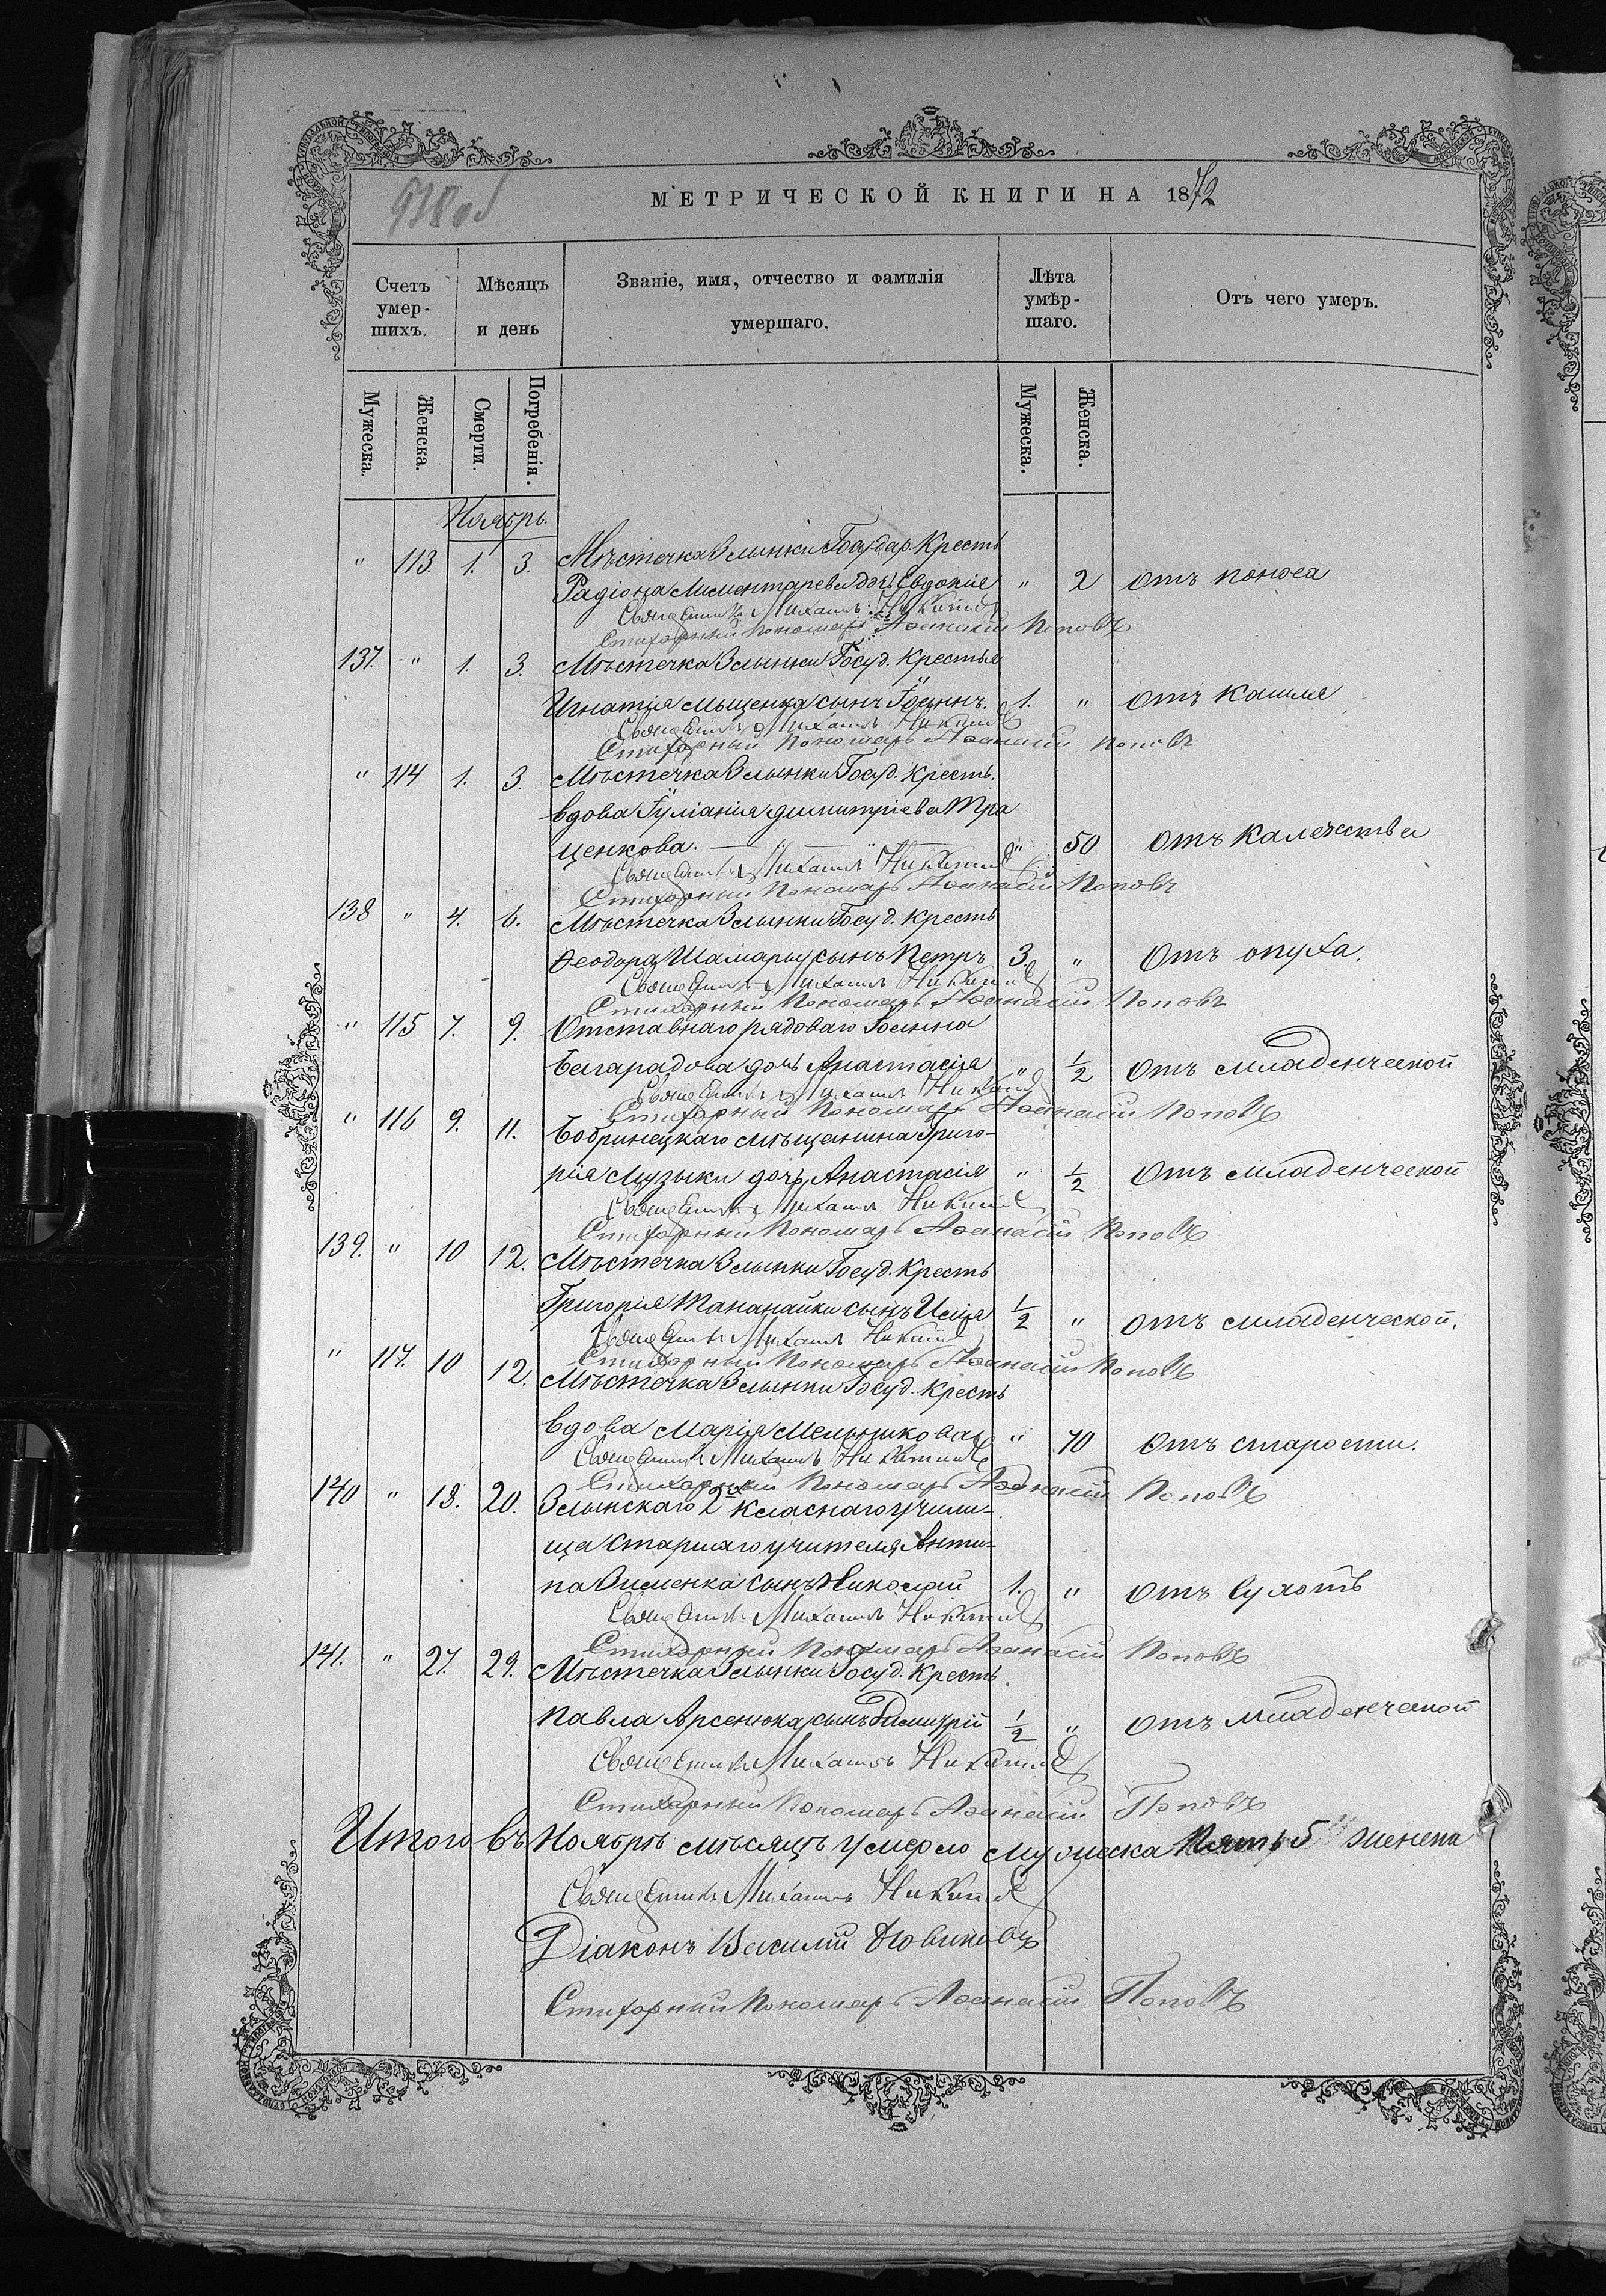 918 об
МЕТРИЧЕСКОЙ КНИГИ НА 1872
Счетъ умер-шихъ.
Мѣсяцъ и день
Званіе, имя, отчество и фамилія умершаго.
Лѣта умѣр-шаго.
Отъ чего умеръ.
Мужеска. Женска. Смерти. Погребенія. Мужеска. Женска.
Ноябрь.
" 113. 1. 3. Мѣстечка Злынки Государ. Кресть
Радіона Лиментарева дочь Евдокія " 2 отъ поноса
Священникъ Михаилъ Никитинъ
Стихарный Пономарь Аѳанасій Поповъ
137. " 1. 3. Мѣстечка Злынки Госуд. Крестья
Игнатія Мищенка сынъ Іоаннъ. 1. " отъ кашля
Священникъ Михаилъ Никитинъ
Стихарный Пономарь Аѳанасій Поповъ
" 114 1. 3. Мѣстечка Злынки Госуд. Кресть.
вдова Іуліанія Димитріева Тра
ценкова. " 50 отъ калечства
Священникъ Михаилъ Никитинъ
Стихарный Пономарь Аѳанасій Поповъ
138 " 4. 6. Мѣстечка Злынки Госуд. Кресть
Ѳеодора Шамары сынъ Петръ 3. " Отъ опуха.
Священникъ Михаилъ Никитинъ
Стихарный Пономарь Аѳанасій Поповъ
" 115 7. 9. Отставнаго рядоваго Іоанна
Белгарадова дочь Анастасія " 1/2 отъ младенческой
Священникъ Михаилъ Никитинъ
Стихарный Пономарь Аѳанасій Поповъ
" 116 9. 11. Бобринецкаго мѣщанина Григо-
рія Музыки дочь Анастасія " 1/2 Отъ младенческой
Священникъ Михаилъ Никитинъ
Стихарный Пономарь Аѳанасій Поповъ
139. " 10 12. Мѣстечка Злынки Госуд. Кресть
Григорія Тананайки сынъ Исаія 1/2 " отъ младенческой.
Священникъ Михаилъ Никитинъ
Стихарный Пономарь Аѳанасій Поповъ
" 117. 10 12. Мѣстечка Злынки Госуд. Кресть
вдова Марія Мельникова " 70 отъ старости.
Священникъ Михаилъ Никитинъ
Стихарный Пономарь Аѳанасій Поповъ
140 " 18. 20. Злынскаго 2хъ класнаго учили-
ща старшаго учителя Анти-
па сынъ Николай 1. " отъ сухотъ
Священникъ Михаилъ Никитинъ
Стихарный Пономарь Аѳанасій Поповъ
141. " 27. 29. Мѣстечка Злынки Госуд. Кресть.
Павла Арсенюка сынъ Димитрій 1/2 " отъ младенческой
Священникъ Михаилъ Никитинъ
Стихарный Пономарь Аѳанасій Поповъ
Итого въ Ноябрѣ мѣсяцѣ умерло мужеска пять 5 женска
Священникъ Михаилъ Никитинъ
Діаконъ Василій Новиковъ
Стихарный Пономарь Аѳанасій Поповъ